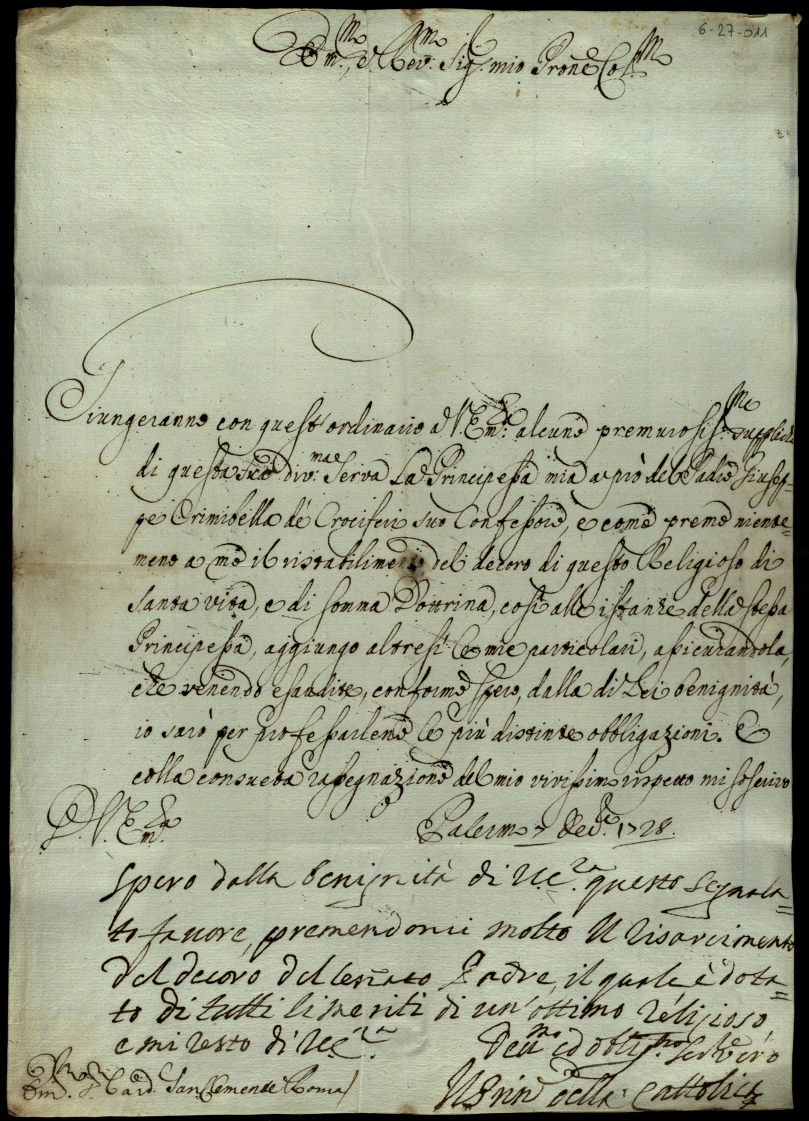 6-27-011
Em.mo, e Rev.mo Sig.r mio Prone Col.mo
Giungeranno con quest'ordinario a V. Em.za alcune premurosiss.me suppliche
di questa sua div.ma Serva La Principessa mia a prò del Padre Giusep=
pe Crimibella de' Crociferi suo Confessore, e come preme niente=
meno a me il ristabilimento del decoro di questo Religioso di
santa vita, e di somma Dottrina, così alle istanze della stessa
Principessa, aggiungo altresì le mie particolari, assicurandola,
che venendo esaudite, conforme spero, dalla di Lei benignità,
io sarò per professarlene le più distinte obbligazioni. E
colla consueta rassegnazione del mio vivissimo rispetto mi soscrivo
D. V. Em.za
Palermo 7 1728.
Spero dalla benignità di V.E.za questo segnala=
to favore, premendomi molto il risarcimento
del decoro del Padre, il quale è dota=
to di tutti li meriti di un'ottimo religioso
e mi resto di V.E.za
Dev.mo ed obblig.mo Ser.re vero
Il Prin. della Cattolica
Em. S. Card. San Clemente Roma